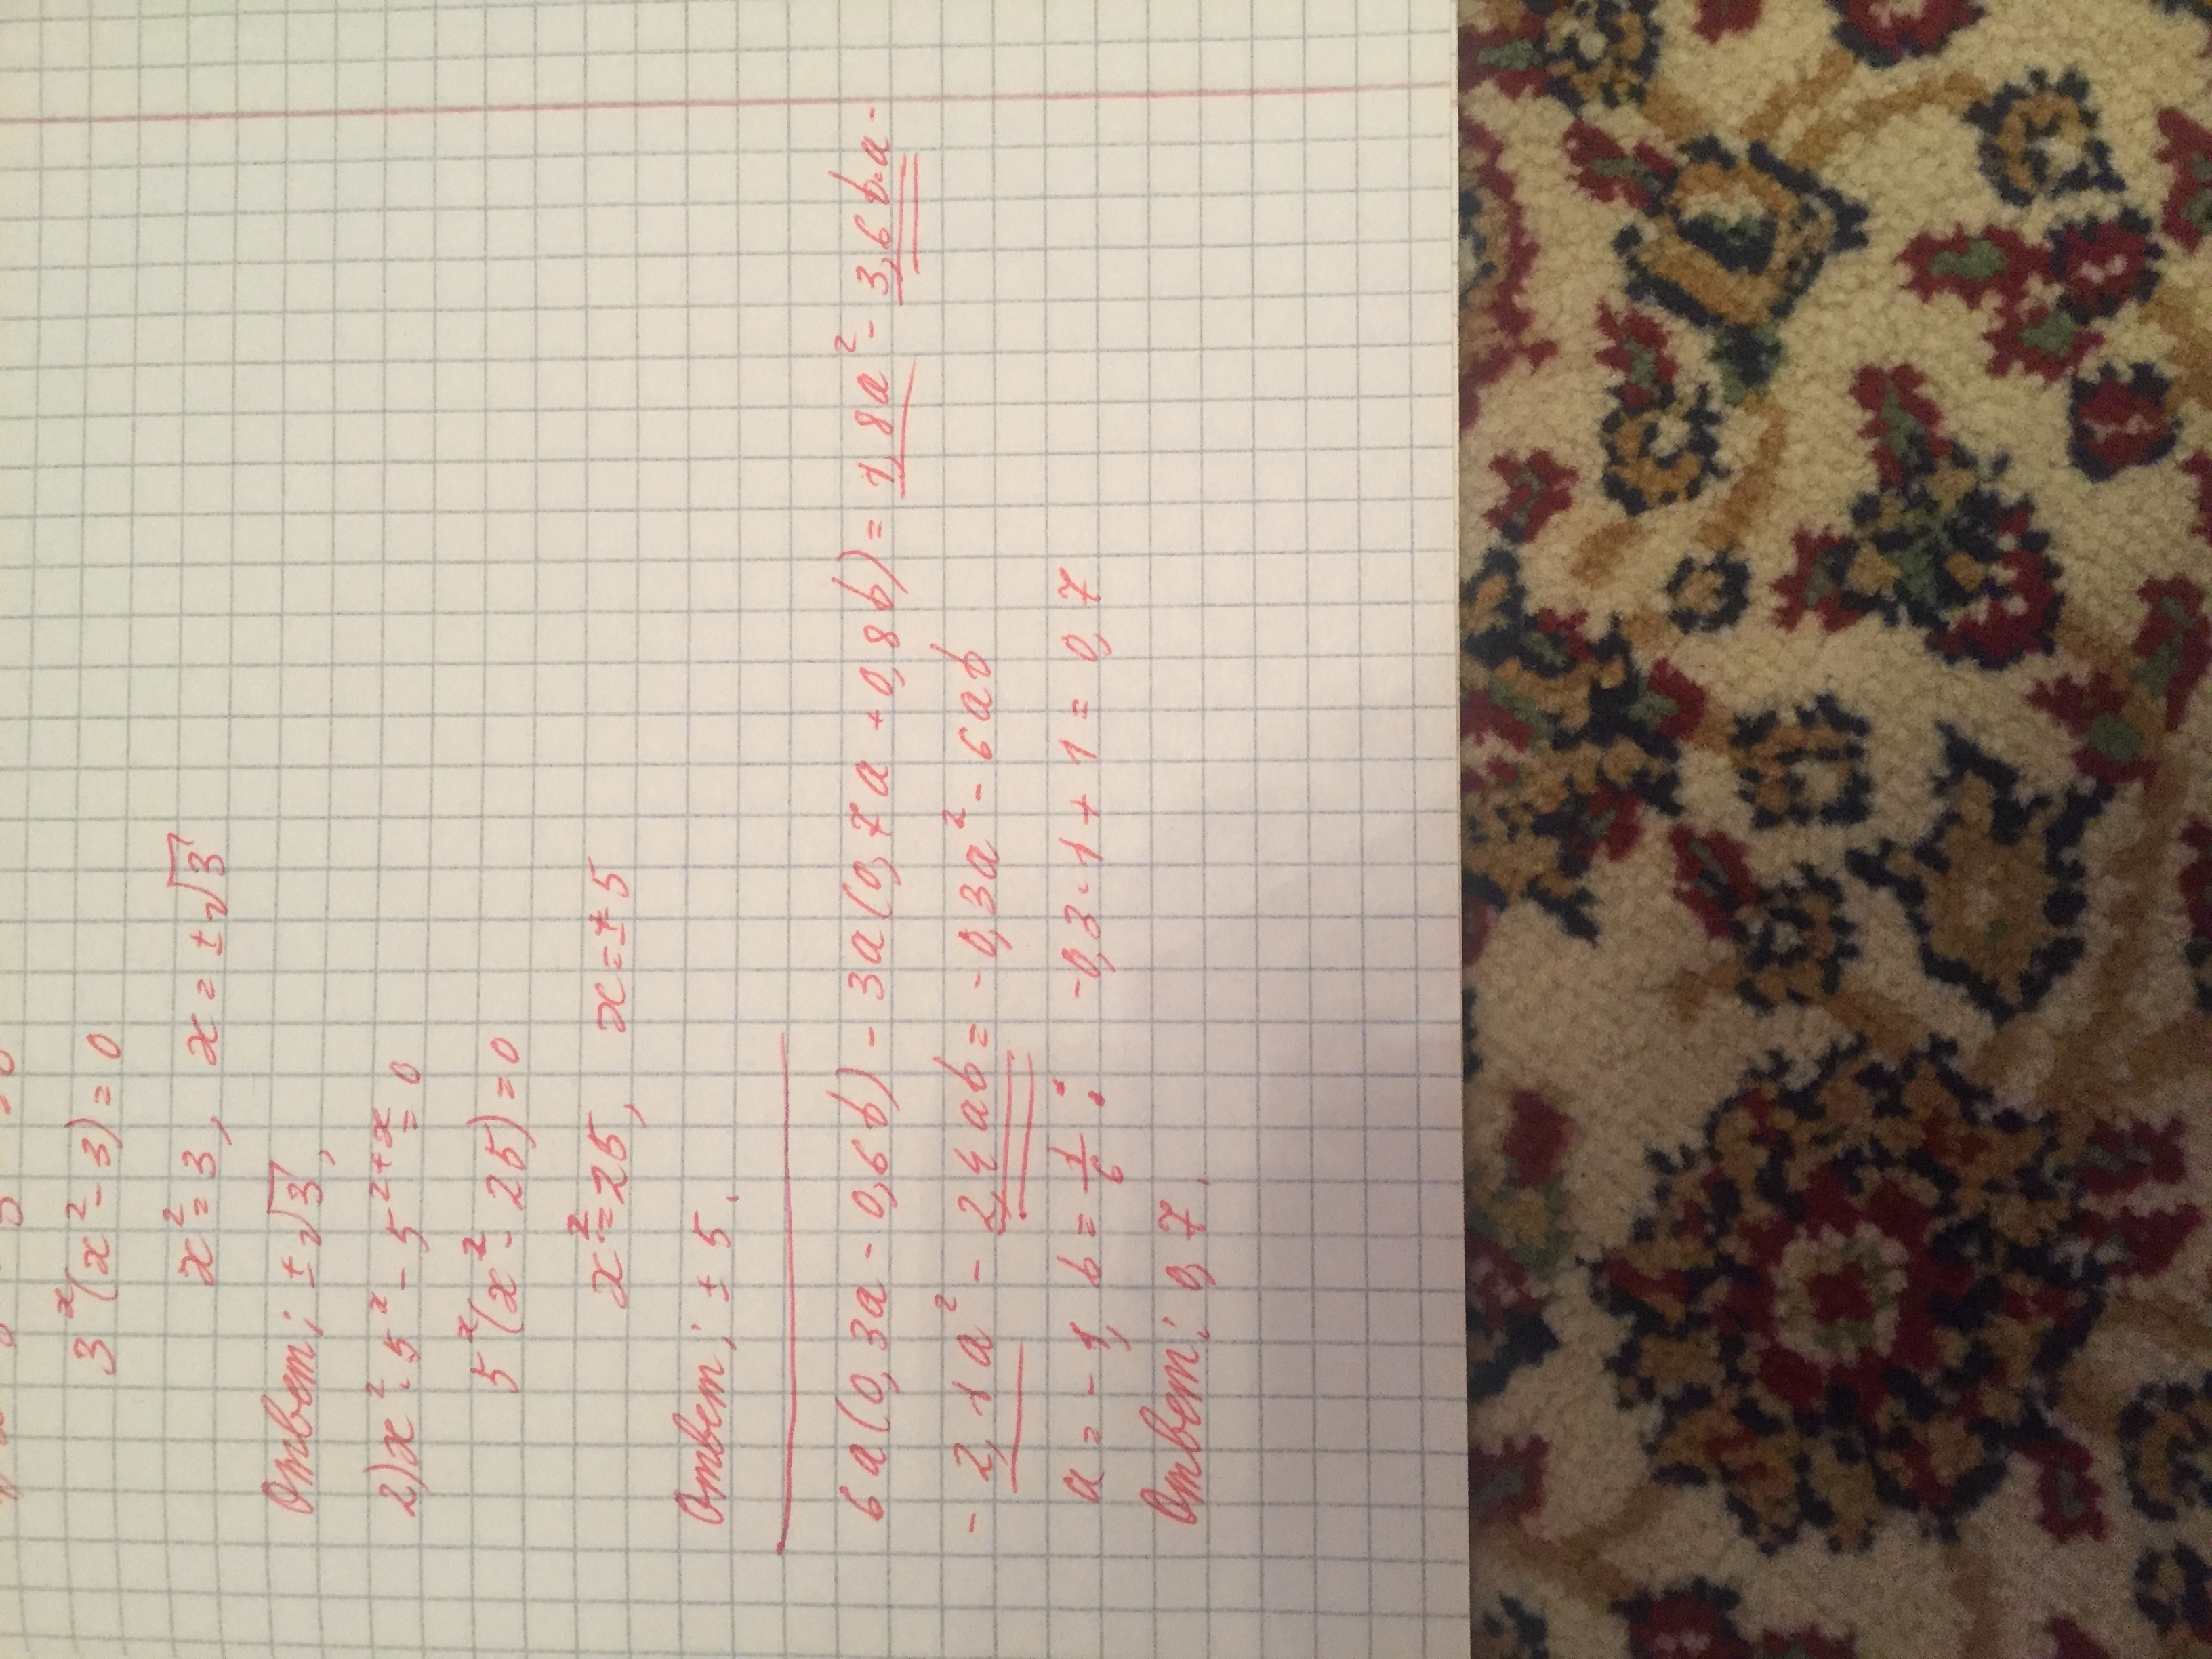 3ˣ(x²-3)=0
x²=3, x=±√3
Ответ: ±√3,
2) x²·5ˣ-5²⁺ˣ=0
5ˣ(x²-25)=0
x²=25, x=±5
Ответ: ±5.
6a(0,3a-0,6b)-3a(0,7a+0,8b)=1,8a²-3,6b·a-
-2,1a²-2,4ab=-0,3a²-6ab
a=-1, b=1/6: -0,3·1+1=0,7
Ответ: 0,7.